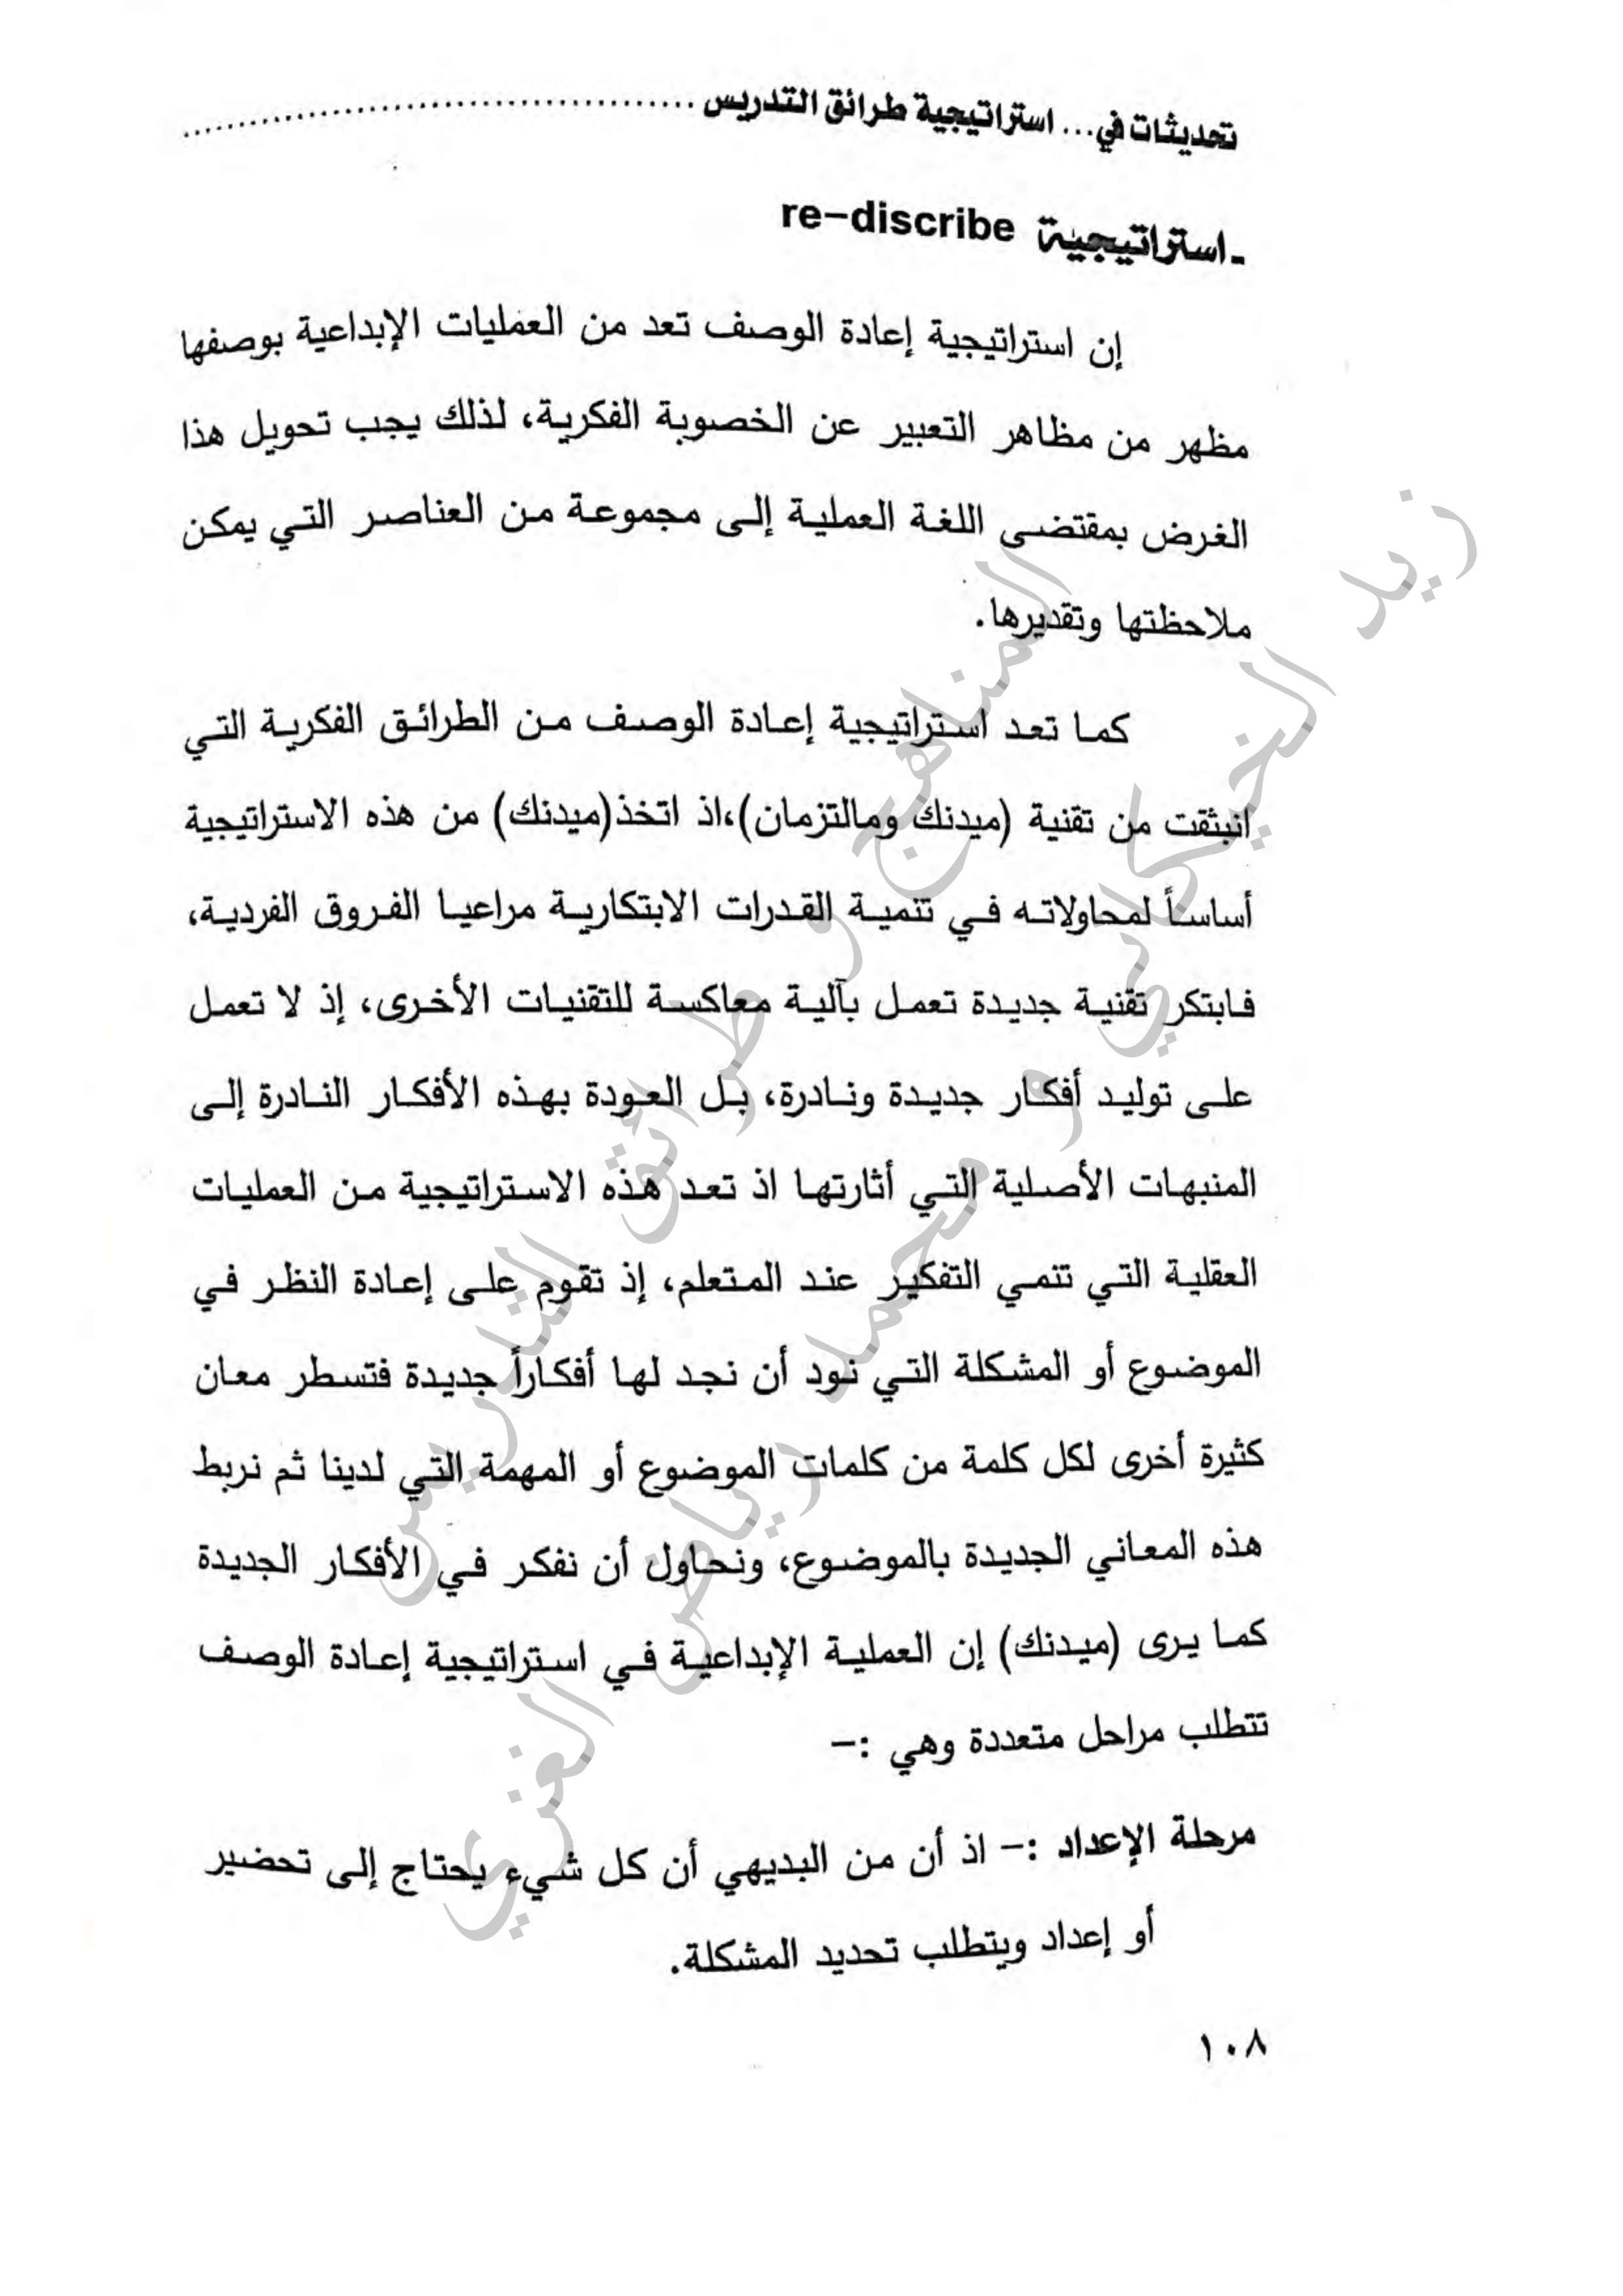 تحديثات في... استراتيجية طرائق التدريس ........................................
ـ استراتيجية re-discribe
إن استراتيجية إعادة الوصف تعد من العمليات الإبداعية بوصفها
مظهر من مظاهر التعبير عن الخصوبة الفكرية، لذلك يجب تحويل هذا
الغرض بمقتضى اللغة العملية إلى مجموعة من العناصر التي يمكن
ملاحظتها وتقديرها.
كما تعد استراتيجية إعادة الوصف من الطرائق الفكرية التي
انبثقت من تقنية (ميدنك ومالتزمان)،اذ اتخذ(ميدنك) من هذه الاستراتيجية
أساساً لمحاولاته في تنمية القدرات الابتكارية مراعيا الفروق الفردية،
فابتكر تقنية جديدة تعمل بآلية معاكسة للتقنيات الأخرى، إذ لا تعمل
على توليد أفكار جديدة ونادرة، بل العودة بهذه الأفكار النادرة إلى
المنبهات الأصلية التي أثارتها اذ تعد هذه الاستراتيجية من العمليات
العقلية التي تنمي التفكير عند المتعلم، إذ تقوم على إعادة النظر في
الموضوع أو المشكلة التي نود أن نجد لها أفكاراً جديدة فتسطر معان
كثيرة أخرى لكل كلمة من كلمات الموضوع أو المهمة التي لدينا ثم نربط
هذه المعاني الجديدة بالموضوع، ونحاول أن نفكر في الأفكار الجديدة
كما يرى (ميدنك) إن العملية الإبداعية في استراتيجية إعادة الوصف
تتطلب مراحل متعددة وهي :-
مرحلة الإعداد :- اذ أن من البديهي أن كل شيء يحتاج إلى تحضير
أو إعداد ويتطلب تحديد المشكلة.
١٠٨
المناهج و طرائق التدريس
زيد الخيكاني و محمد رياض الغزي